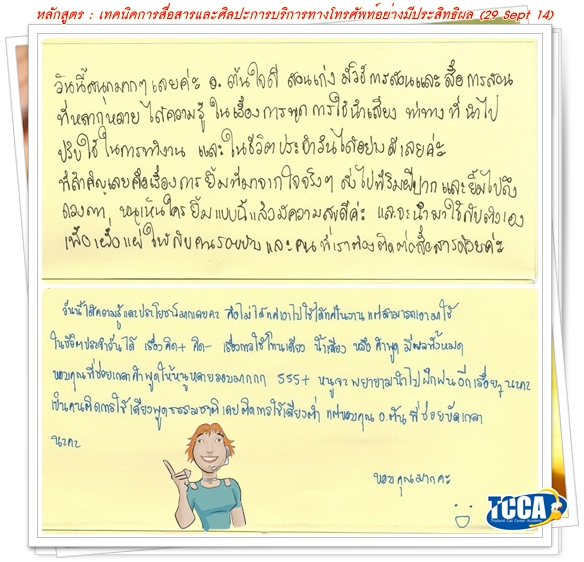 หลักสูตร : เทคนิคการสื่อสารและศิลปะการบริการทางโทรศัพท์อย่างมีประสิทธิผล (29 Sept 14)
วันนี้สนุกมากๆ เลยค่ะ อ. ต้นใจดี สอนเก่ง มีวิธีการสอนและสื่อการสอน
ที่หลากหลาย ได้ความรู้ ในเรื่องการพูด การใช้น้ำเสียง ท่าทาง ที่นำไป
ปรับใช้ในการทำงาน และในชีวิตประจำวันได้อย่างดีเลยค่ะ
ที่สำคัญเลยคือเรื่องการยิ้มที่มาจากใจจริงๆ ส่งไปที่ริมฝีปาก และยิ้มไปถึง
ดวงตา หนูเห็นใครยิ้มแบบนี้แล้วมีความสุขดีค่ะ และจะนำมาใช้กับตัวเอง
เพื่อเผื่อแผ่ให้กับคนรอบข้าง และคนที่เราต้องติดต่อสื่อสารด้วยค่ะ
วันนี้ได้ความรู้และประโยชน์มากเลยคะ คือไม่ได้แค่เอาไปใช้ได้แค่ในงาน แต่สามารถเอามาใช้
ในชีวิตประจำวันได้ เรื่องคิด+ คิด- เรื่องการใช้โทนเสียง น้ำเสียง หรือ คำพูด มีผลทั้งหมด
ขอบคุณที่ช่วยเกลาคำพูดให้หนูหลายรอบมากกก 555+ หนูจะพยายามนำไปฝึกฝนอีกเรื่อยๆ นะคะ
เป็นคนติดการใช้เสียงพูดธรรมชาติ เคยติดการใช้เสียงต่ำ แต่ขอบคุณ อ.ต้น ที่ช่วยขัดเกลา
นะคะ
ขอบคุณมากคะ
TCCA
Thailand Call Center Academy